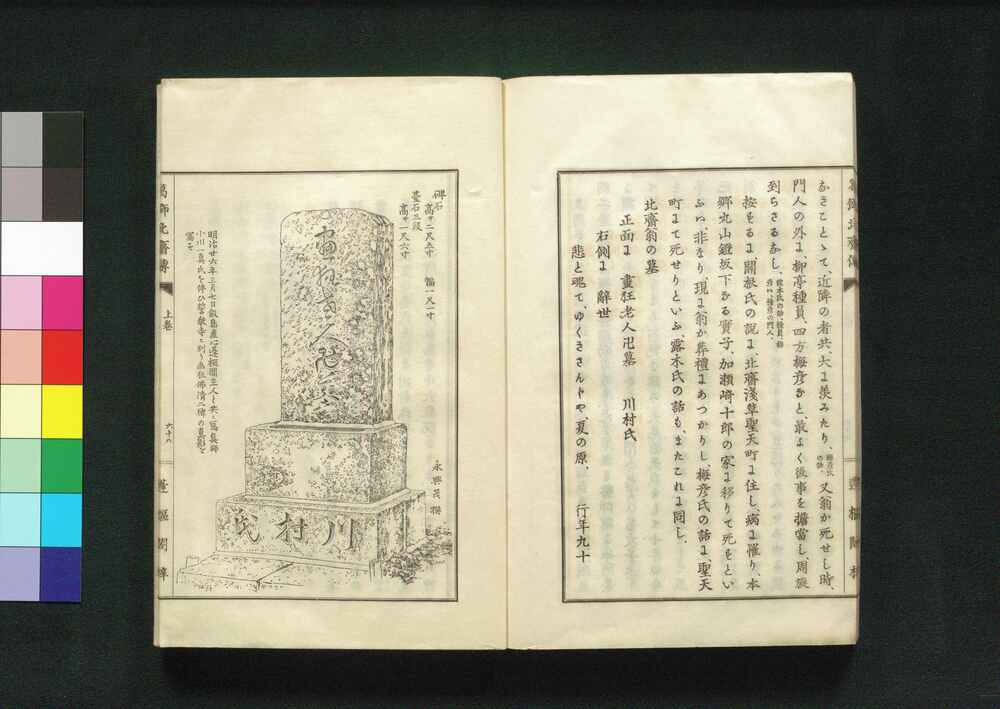 なきことゝて、近隣の者共、大に羨みたり、梅彦氏の話、又翁が死せし時、
門人の外に、柳亭種員、四方梅彦など、最よく後事を擔當し、周旋
到らざるなし、露木氏の話、種員、
按するに、關根氏の說に、北齋淺草聖天町に住し、病に罹り、本
郷丸山鐙坂下なる實子、加瀨崎十郎の家に移りて死せりとい
ふハ、非なり現に翁が葬禮にあつかりし、梅彦氏の話に、聖天
町にて死せりといふ、露木氏の話も、またこれに同し、
北齋翁の墓
正面に 畫狂老人卍墓 川村氏
右側に 辭世
悲と魂て、ゆくきさんじや、夏の原、 行年九十
葛飾北齋傳
上卷
六十八
蓬樞閣梓
碑石 高サ二尺五寸 幅一尺一寸
臺石二段 高サ一尺六寸
川村氏
永興茂撰
明治廿六年三月七日飯島虚心蓬樞閣主人と共に寫眞師
小川一眞氏を伴ひ誓敎寺に到り
寫す